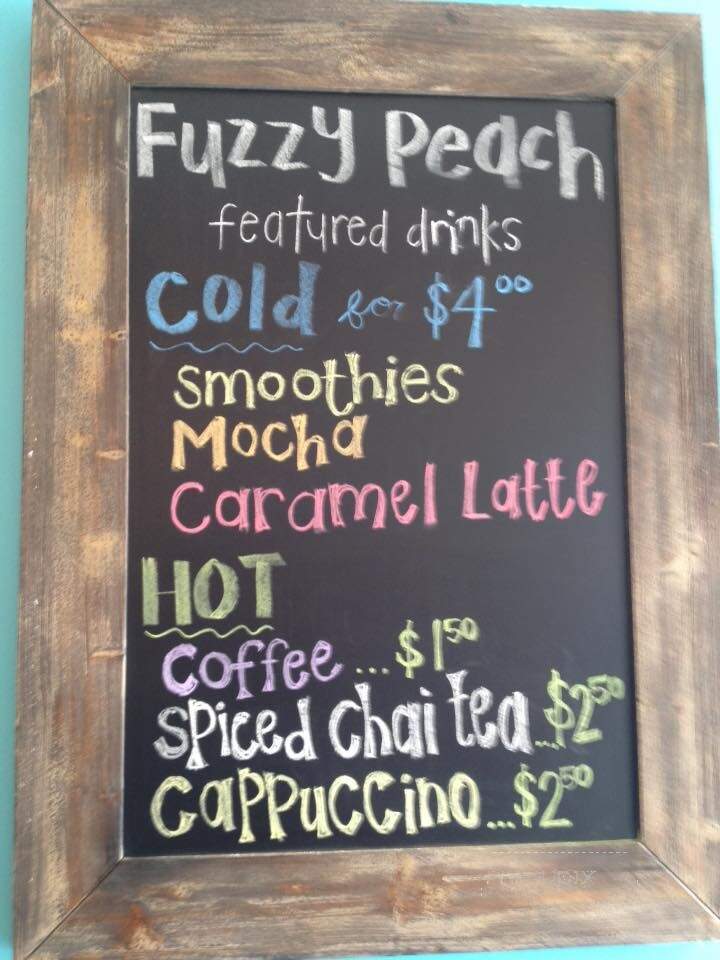 Fuzzy Peach
featured drinks
Cold for $4.00
smoothies
Mocha
Caramel Latte
HOT
Coffee...$1.50
spiced chai tea...$2.50
Cappuccino...$2.50